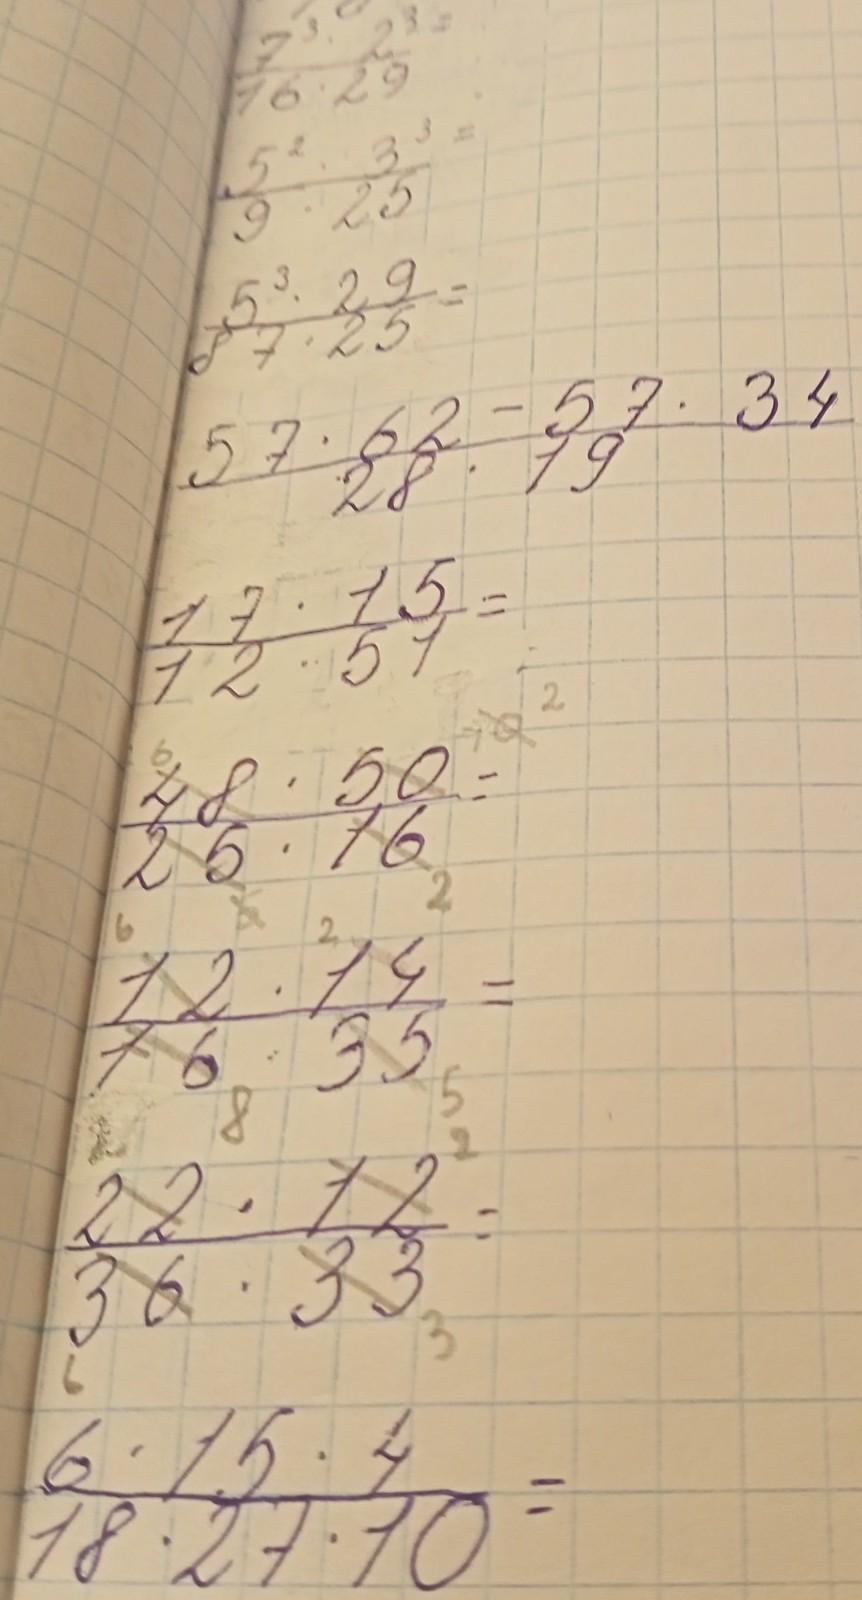 7³ · 2³ =
16 · 29
5² · 3³ =
9 · 25
5³ · 29 =
87 · 25
57 · 62 - 57 · 34
28 · 19
17 · 15 =
12 · 51
6 10 2
48 · 50 =
25 · 16
5 2
6 2
12 · 14 =
16 · 35
8 5
2
22 · 12 =
36 · 33
6 3
6 · 15 · 4 =
18 · 27 · 10